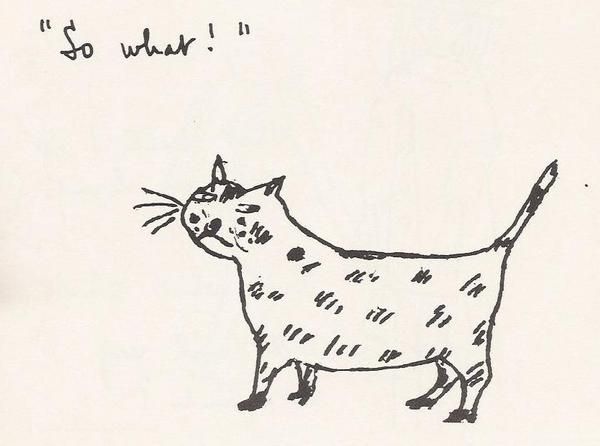 "So what!"